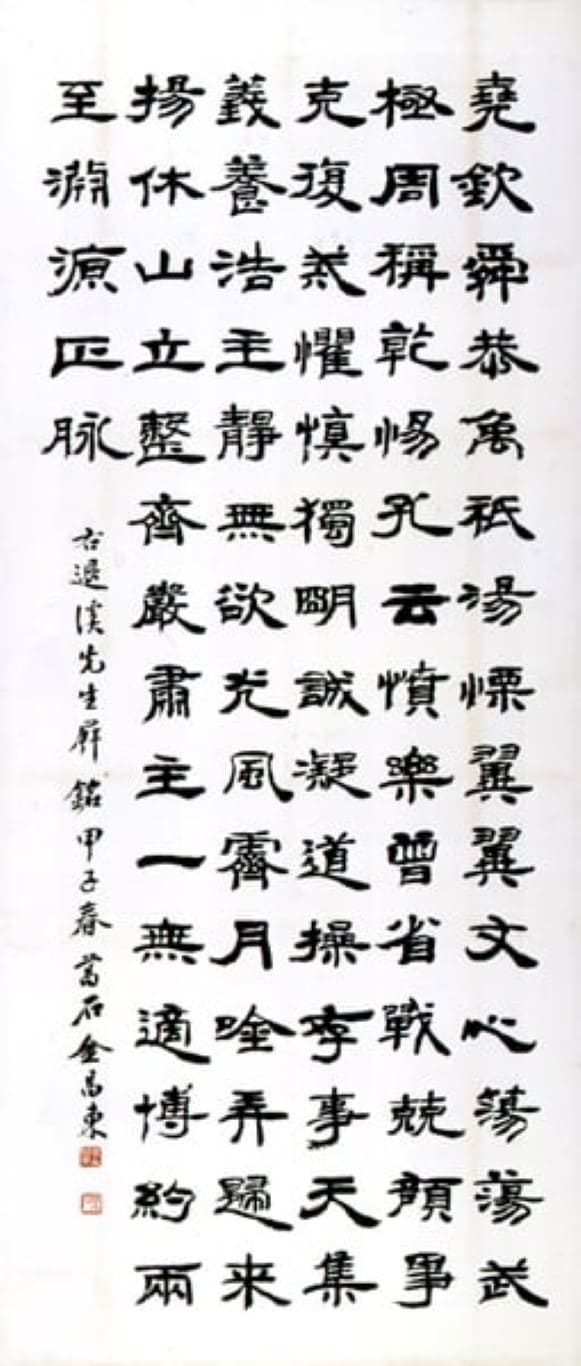 堯欽舜恭禹祗湯慄翼翼文心蕩蕩武
極周稱乾惕孔云憤樂曾省戰兢顔事
克復戒懼愼獨明誠凝道操存事天集
義養浩主靜無欲光風霽月吟弄歸來
揚休山立整齊嚴肅主一無適博約兩
至淵源正脉
右退溪先生屛銘 甲子春 石金昌東